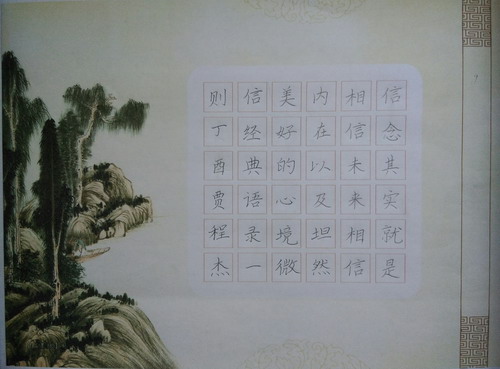 信念其实就是
相信未来相信
内在以及坦然
美好的心境微
信经典语录一
则丁酉贾程杰